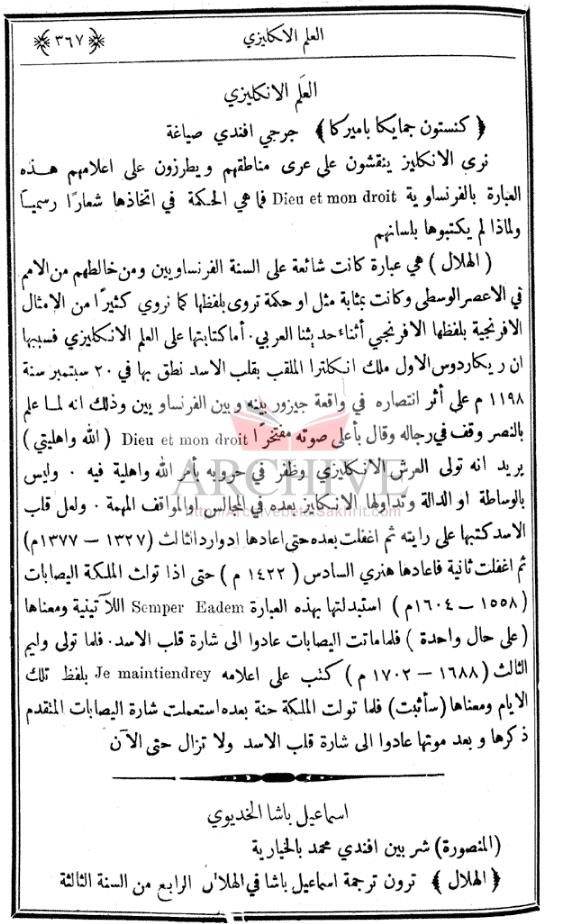 العلم الانكليزي
﴿٣٦٧﴾
العلَم الانكليزي
﴿ كنستون جمايكا باميركا ﴾ جرجي افندي صياغة
نرى الانكليز ينقشون على عرى مناطقهم ويطرزون على اعلامهم هذه
العبارة بالفرنساوية Dieu et mon droit فما هي الحكمة في اتخاذها شعارًا رسميًا
ولماذا لم يكتبوها بلسانهم
( الهلال ) هي عبارة كانت شائعة على السنة الفرنساويين ومن خالطهم من الامم
في الاعصر الوسطى وكانت بمثابة مثل او حكمة تروى بلفظها كما نروي كثيرًا من الامثال
الافرنجية بلفظها الافرنجي أثناء حديثنا العربي . أما كتابتها على العلم الانكليزي فسببها
ان ريكاردوس الاول ملك انكلترا الملقب بقلب الاسد نطق بها في ٢٠ سبتمبر سنة
١١٩٨ م على أثر انتصاره في واقعة جيزور بينه وبين الفرنساويين وذلك انه لما علم
بالنصر وقف في رجاله وقال بأعلى صوته مفتخرًا Dieu et mon droit ( الله واهليتي )
يريد انه تولى العرش الانكليزي وظفر في حروبه بأمر الله واهلية فيه . وليس
بالوساطة او الدالة وتداولها الانكليز بعده في المجالس او المواقف المهمة . ولعل قلب
الاسد كتبها على رايته ثم اغفلت بعده حتى اعادها ادوارد الثالث ( ١٣٢٧ – ١٣٧٧م )
ثم اغفلت ثانية فاعادها هنري السادس ( ١٤٢٢ م ) حتى اذا تولت الملكة اليصابات
( ١٥٥٨ – ١٦٠٤م ) استبدلتها بهذه العبارة Semper Eadem اللاتينية ومعناها
( على حال واحدة ) فلما ماتت اليصابات عادوا الى شارة قلب الاسد. فلما تولى وليم
الثالث ( ١٦٨٨ – ١٧٠٢ م ) كتب على اعلامه Je maintiendrey بلفظ تلك
الايام ومعناها ( سأثبت ) فلما تولت الملكة حنة بعده استعملت شارة اليصابات المتقدم
ذكرها وبعد موتها عادوا الى شارة قلب الاسد ولا تزال حتى الآن
اسماعيل باشا الخديوي
( المنصورة ) شربين افندي محمد بالخيارية
﴿ الهلال ﴾ ترون ترجمة اسماعيل باشا في الهلال الرابع من السنة الثالثة
ARCHIVE